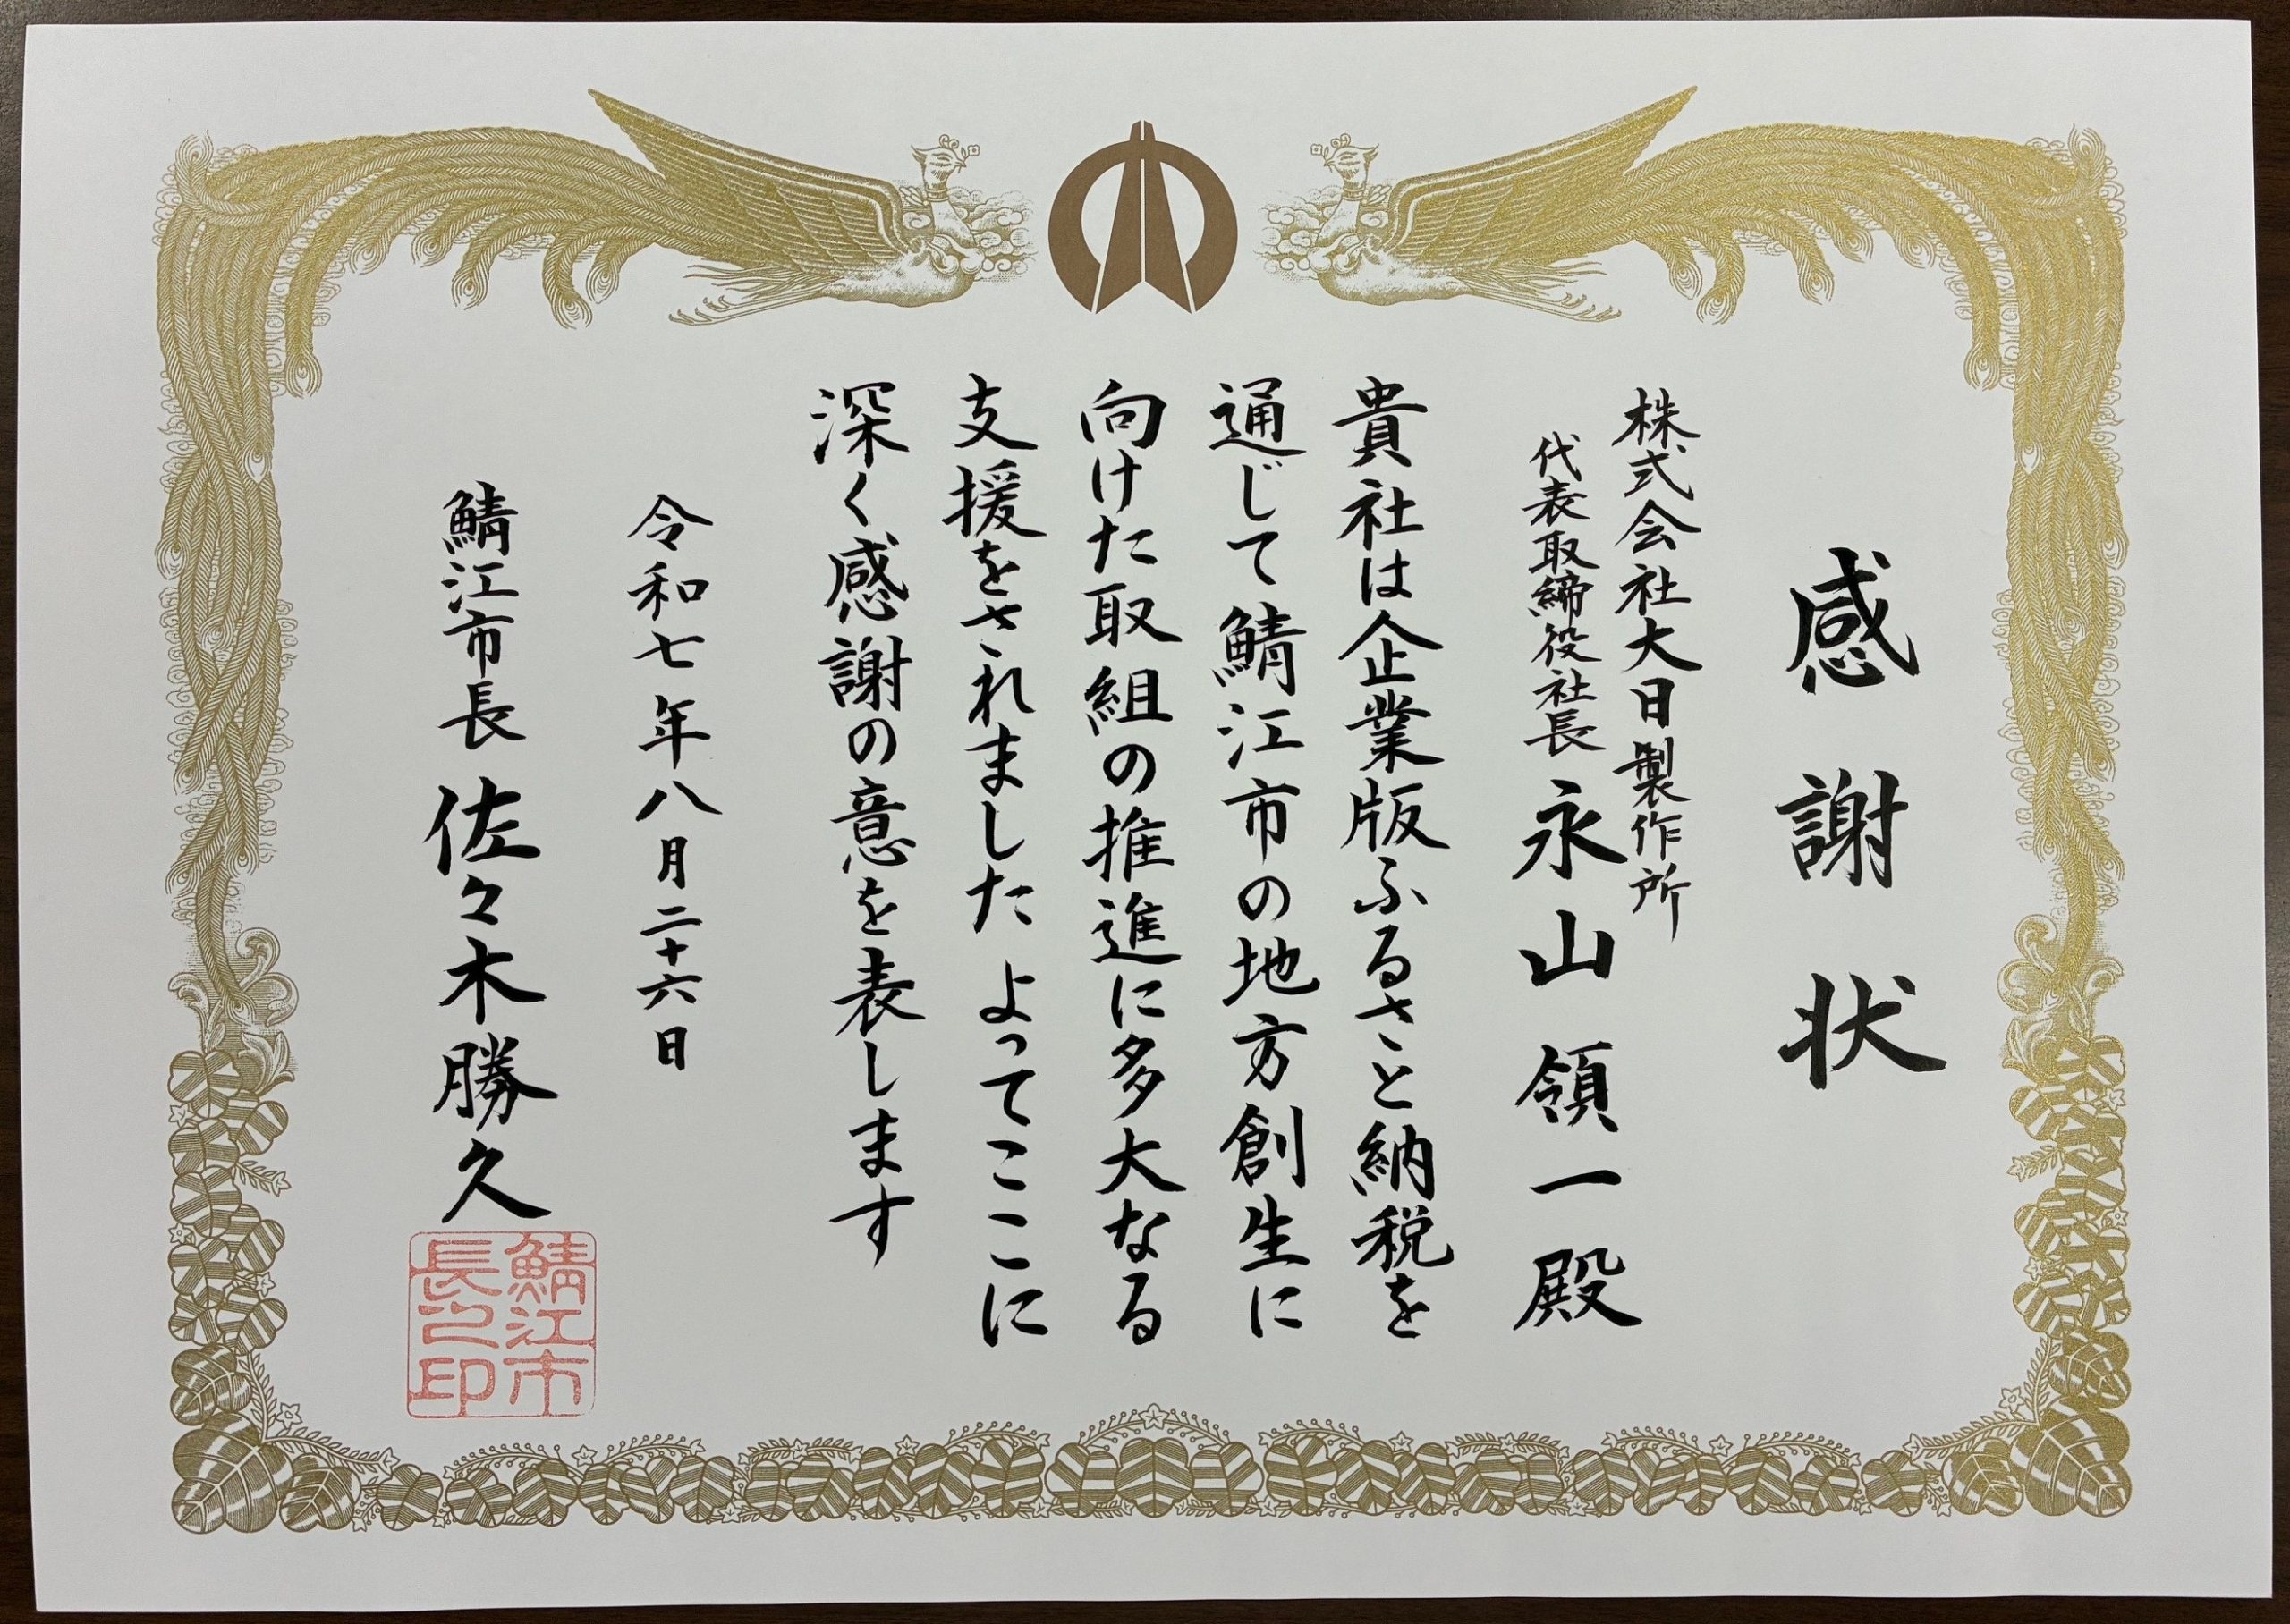 感謝状
株式会社大日製作所
代表取締役社長 永山領一殿
貴社は企業版ふるさと納税を
通じて鯖江市の地方創生に
向けた取組の推進に多大なる
支援をされました よってここに
深く感謝の意を表します
令和七年八月二十六日
鯖江市長 佐々木勝久
鯖江市
長之印